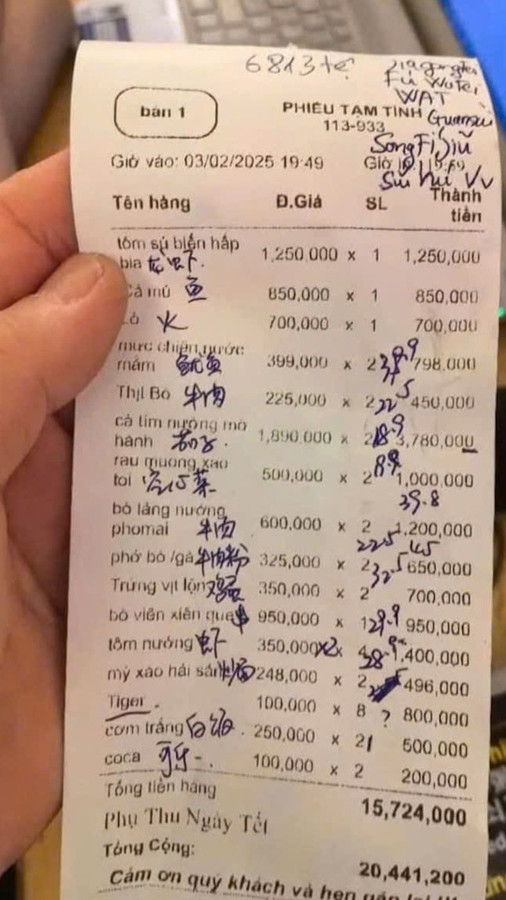 6813
bàn 1
PHIẾU TẠM TÍNH
113-933
WAT
Giờ vào: 03/02/2025 19:49
Tên hàng Đ.Giá SL Thành tiền
tôm sú biển hấp
bia 龙虾. 1,250,000 x 1 1,250,000
Cá mú 鱼 850,000 x 1 850,000
火 700,000 x 1 700,000
mực chiên nước
mắm 鱿鱼 399,000 x 2 798,000
Thịt Bò 牛肉 225,000 x 2 22.5 450,000
cà tím nướng mỡ
hành 茄子. 1,890,000 x 2 18.9 3,780,000
rau muống xào
tỏi 空心菜 500,000 x 2 1,000,000
39.8
bò lảng nướng
phomai 牛肉 600,000 x 2 1,200,000
22.5 45
phở bò /gà 牛肉粉 325,000 x 2 32.5 650,000
Trứng vịt lộn 鸡蛋 350,000 x 2 700,000
bò viên xiên que 串 950,000 x 1 29.9 950,000
tôm nướng 虾 350,000 x2 x 4 1,400,000
mỳ xào hải sản 炒面 248,000 x 2 496,000
Tiger. 100,000 x 8 ? 800,000
cơm trắng 白饭. 250,000 x 2 500,000
coca 100,000 x 2 200,000
Tổng tiền hàng 15,724,000
Phụ Thu Ngày Tết
Tổng Cộng: 20,441,200
Cảm ơn quý khách và hẹn gặp lại